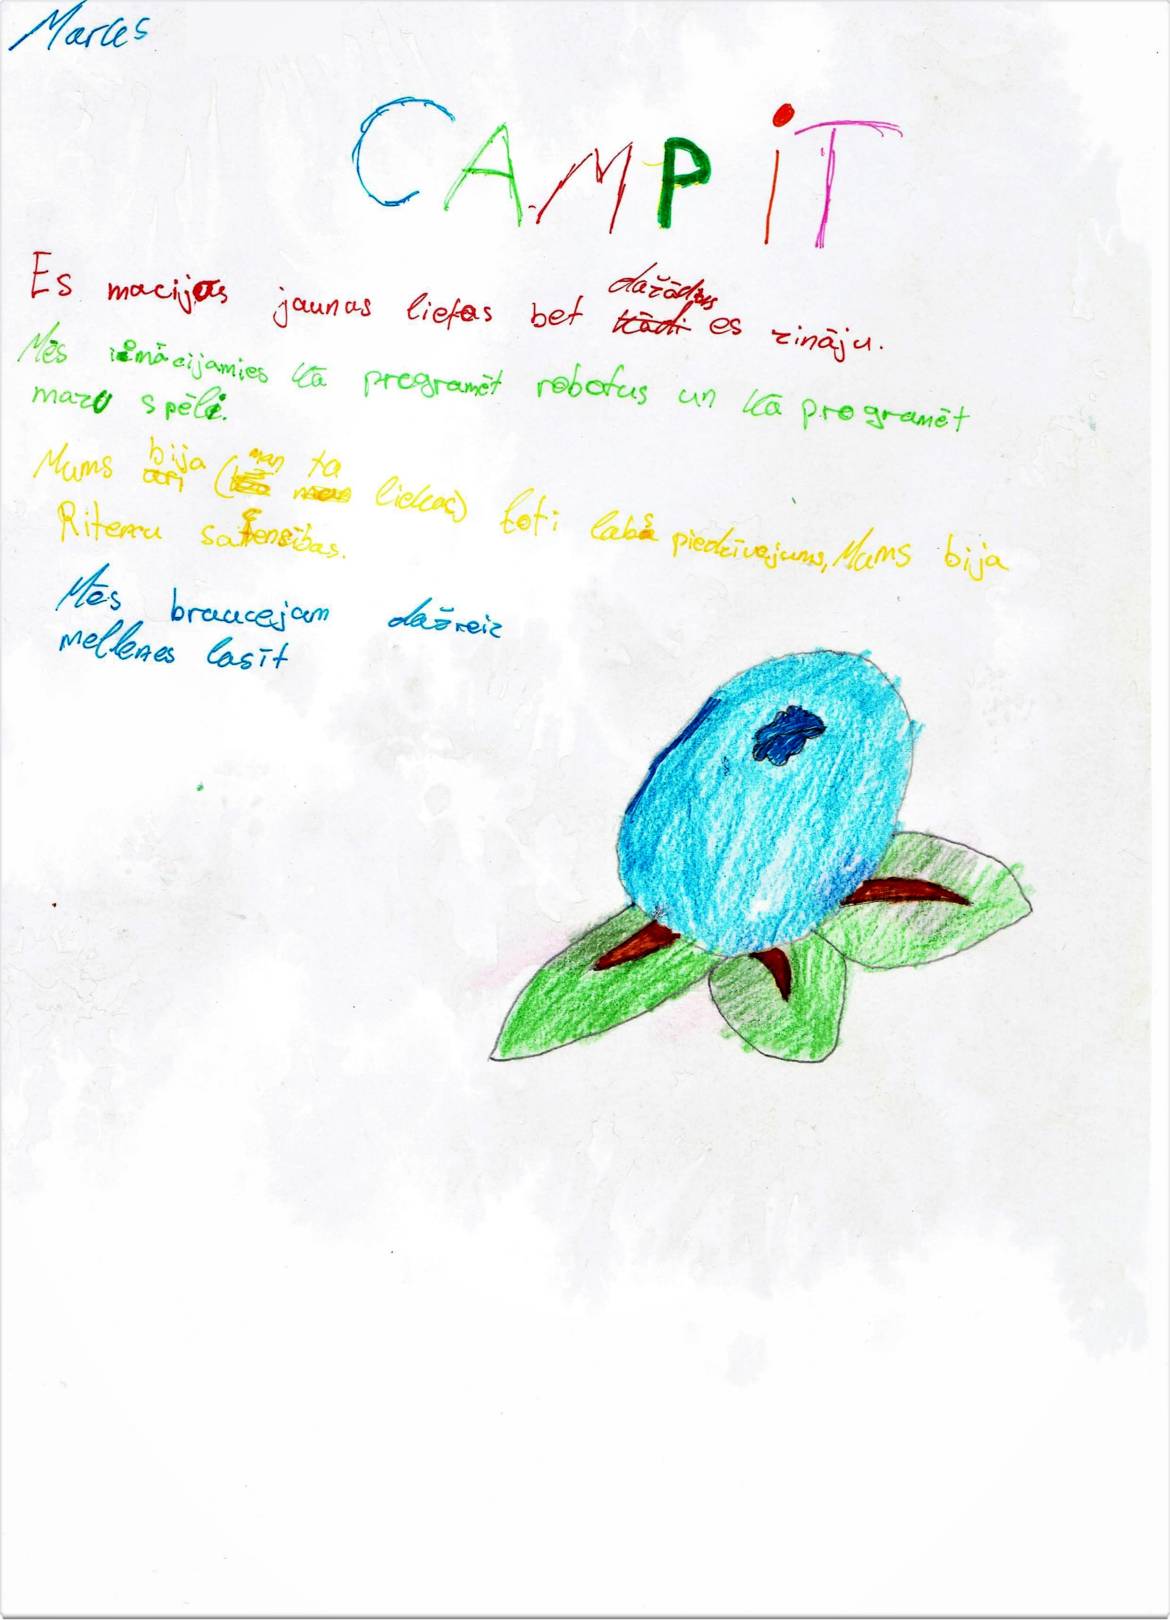 Marks
CAMP iT
Es macijos jaunas lietas bet dažādas es zināju.
Mēs iemācijamies kā programēt robotus un kā programēt
mazu spēli.
Mums bija (man ta liekas) ļoti labs piedzīvojums, Mums bija
Riteņu satensības.
Mēs braucejam dažreiz
mellenes lasīt